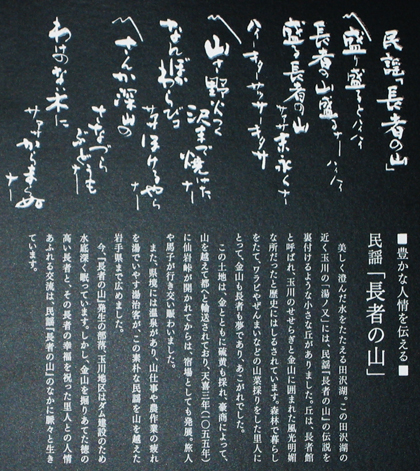 民謡「長者の山」
〽盛る盛るとハイハイ
長者の山盛るナー ハイハイ
盛る長者の山
サアサ末永くナー
ハイ キターサッサ キターサ
〽山さ野火ついて
沢まで焼けた
なんぼわらびコ
サアサほけるやらナー
〽さんか深山の
さなづらぶどうも
わけのない木に
サアサからまぬナー
■豊かな人情を伝える■
民謡「長者の山」
美しく澄んだ水をたたえる田沢湖。この田沢湖の
近く玉川の「湯ノ又」には、民謡「長者の山」の伝説を
裏付けるような小さな丘があります。丘は、長者館
と呼ばれ、玉川のせせらぎと金山に囲まれた風光明媚
な所だったと歴史にはしるされています。森林で暮らし
をたて、ワラビやぜんまいなどの山菜採りをした里人に
とって、金山も長者も夢であり、あこがれでした。
この土地は、金とともに硫黄も採れ、豪商によって、
山を越えて都へと輸送されており、天喜三年(一〇五五年)
に仙岩峠が開かれてからは、宿場としても発展。旅人
や馬子が行き交い賑わいました。
また、県境には温泉があり、山仕事や農作業の疲れ
を湯でいやす湯治客が、この素朴な民謡を山を越えた
岩手県まで広めました。
今、『長者の山』発生の部落、玉川地区はダム建設のため
水底深く眠っています。しかし、金山を掘りあてた徳の
高い長者と、その長者の幸福を祝った里人との人情
あふれる交流は、民謡『長者の山』のなかに脈々と生き
ています。